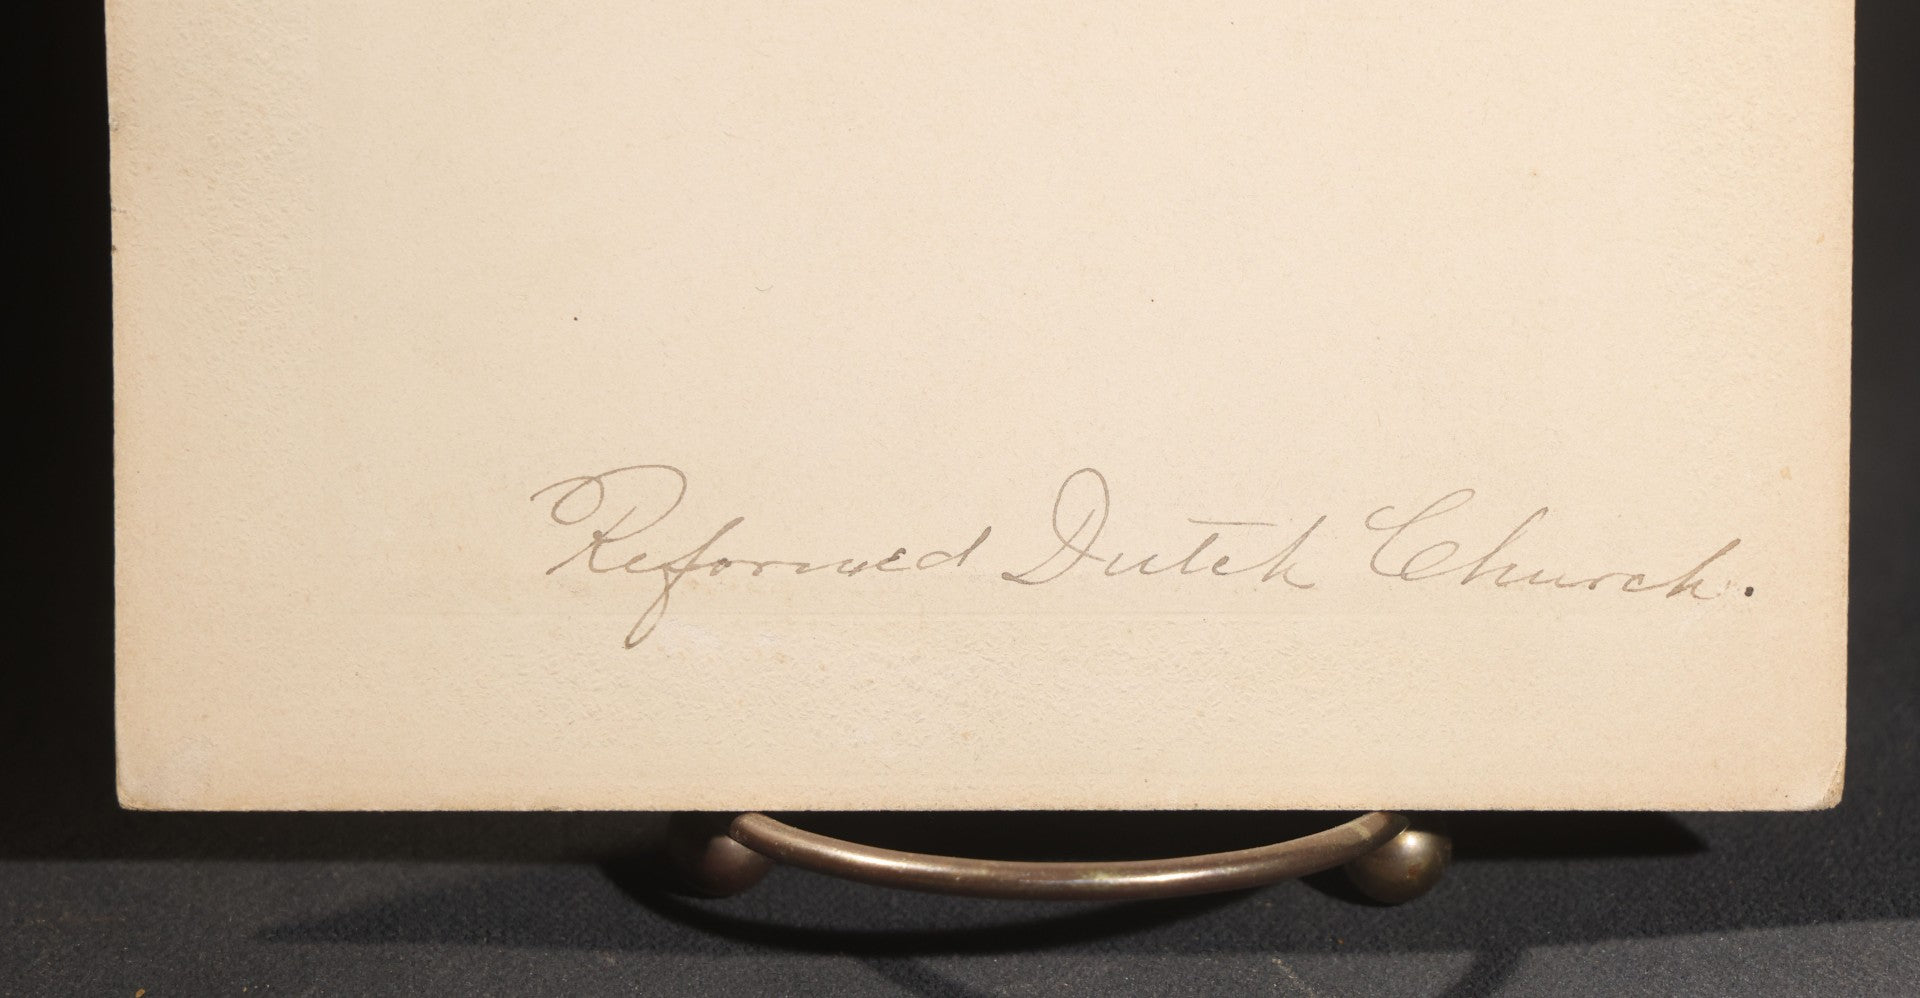 Reformed Dutch Church.